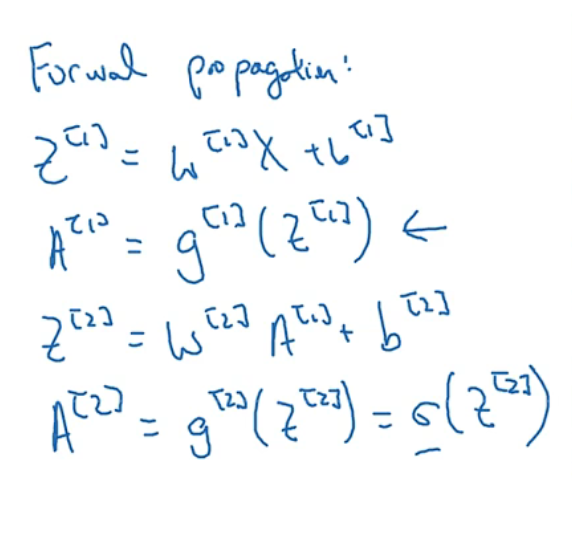 Forwal propagation:
Z^[1] = W^[1] X + b^[1]
A^[1] = g^[1] (Z^[1]) ←
Z^[2] = W^[2] A^[1] + b^[2]
A^[2] = g^[2] (Z^[2]) = σ(Z^[2])